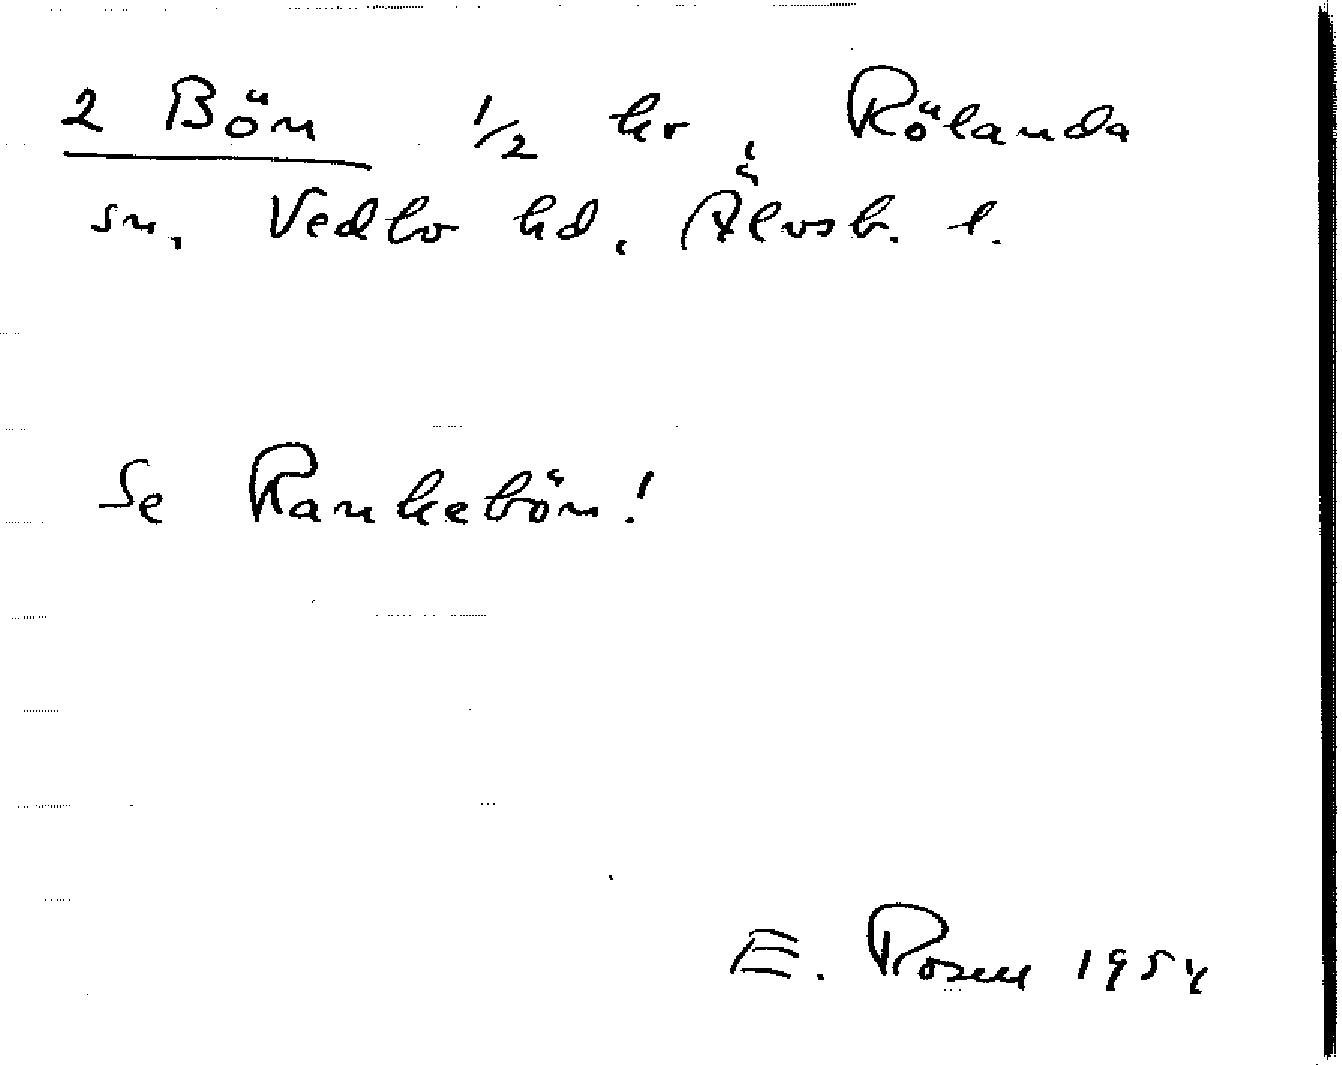 2 Bön 1/2 hr, Rölanda
sn, Vedbo hd, Älvsb. l.
Se Rankebön!
E. Rosell 1954